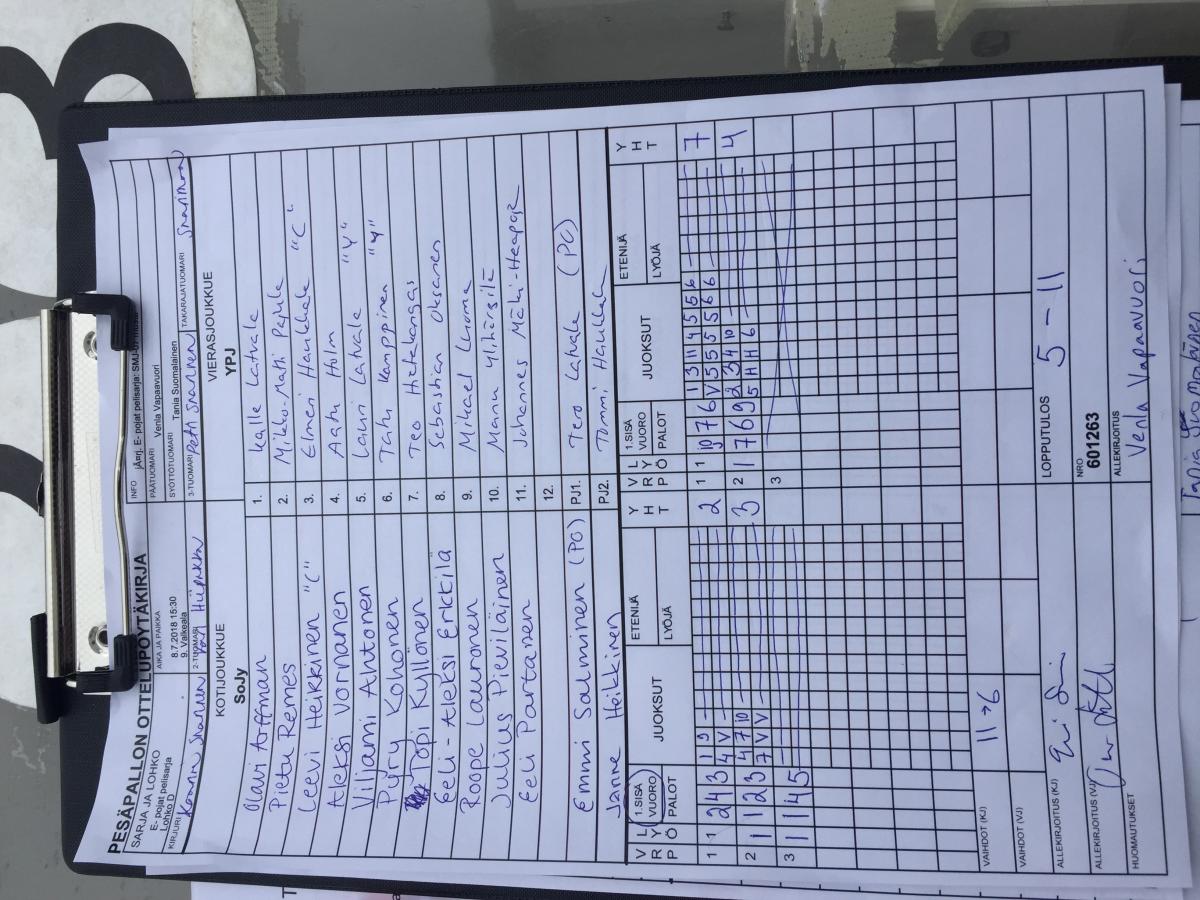 PESÄPALLON OTTELUPÖYTÄKIRJA
SARJA JA LOHKO
E- pojat pelisarja
Lohko D
AIKA JA PAIKKA
8.7.2018 15:30
9. Valkeala
INFO
PÄÄTUOMARI
Venla Vapaavuori
SYÖTTÖTUOMARI
Tania Suomalainen
KIRJURI
2-TUOMARI
3-TUOMARI
TAKARAJATUOMARI
KOTIJOUKKUE
SoJy
VIERASJOUKKUE
YPJ
Olavi Arffman 1. Kalle Latvala
Pietu Remes 2. Mikko-Matti
Leevi Heikkinen "C" 3. Elmeri Haukkala "C"
Aleksi Vornanen 4. Aatu Holm
Viljami Ahtonen 5. Lauri Latvala "Y"
Pyry Kohonen 6. Tatu Kamppinen "Y"
Topi Kyllönen 7. Teo Hietakangas
Eeli-Aleksi Erkkilä 8. Sebastian Oksanen
Roope Lauronen 9. Mikael Luoma
Julius Pieviläinen 10. Manu Ylihärsilä
Eeli Partanen 11. Johannes
12.
Emmi Salminen (PO) PJ1. Tero Latvala (PO)
Janne Heikkinen PJ2. Tommi Haukkala
VRP LYÖ 1.SISÄ VUORO PALOT JUOKSUT ETENIJÄ LYÖJÄ YHT VRP LYÖ 1.SISÄ VUORO PALOT JUOKSUT ETENIJÄ LYÖJÄ YHT
1 1 2 4 3 1 9 2 1 1 10 7 6 1 3 11 4 5 6 7
4 V V 5 5 5 6 6
2 1 1 2 3 4 7 10 3 2 1 7 6 9 2 3 4 10 4
7 V V 5 H H 6
3 1 1 4 5 3
VAIHDOT (KJ) 11→6
VAIHDOT (VJ)
ALLEKIRJOITUS (KJ)
LOPPUTULOS 5 - 11
ALLEKIRJOITUS (VJ)
NRO
601263
HUOMAUTUKSET
ALLEKIRJOITUS
Venla Vapaavuori